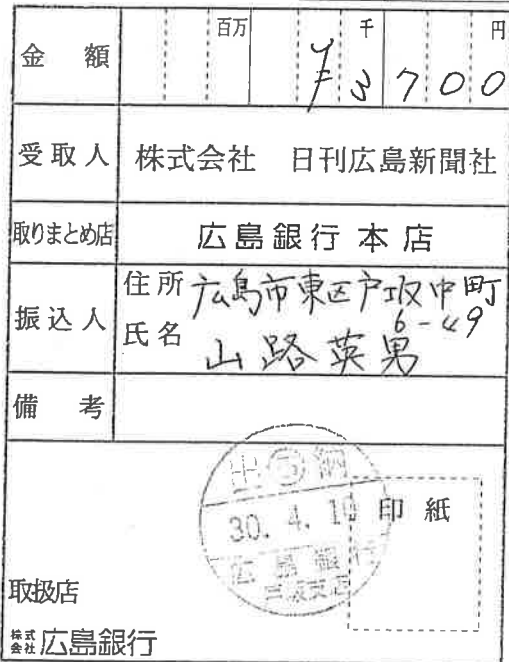 百万 千 円
金額 ¥3700
受取人 株式会社 日刊広島新聞社
取りまとめ店 広島銀行本店
振込人 住所 広島市東区戸坂中町
6-49
氏名 山路英男
備考
出⑤納
30. 4. 10
広島銀行
戸坂支店
印紙
取扱店
株式会社 広島銀行